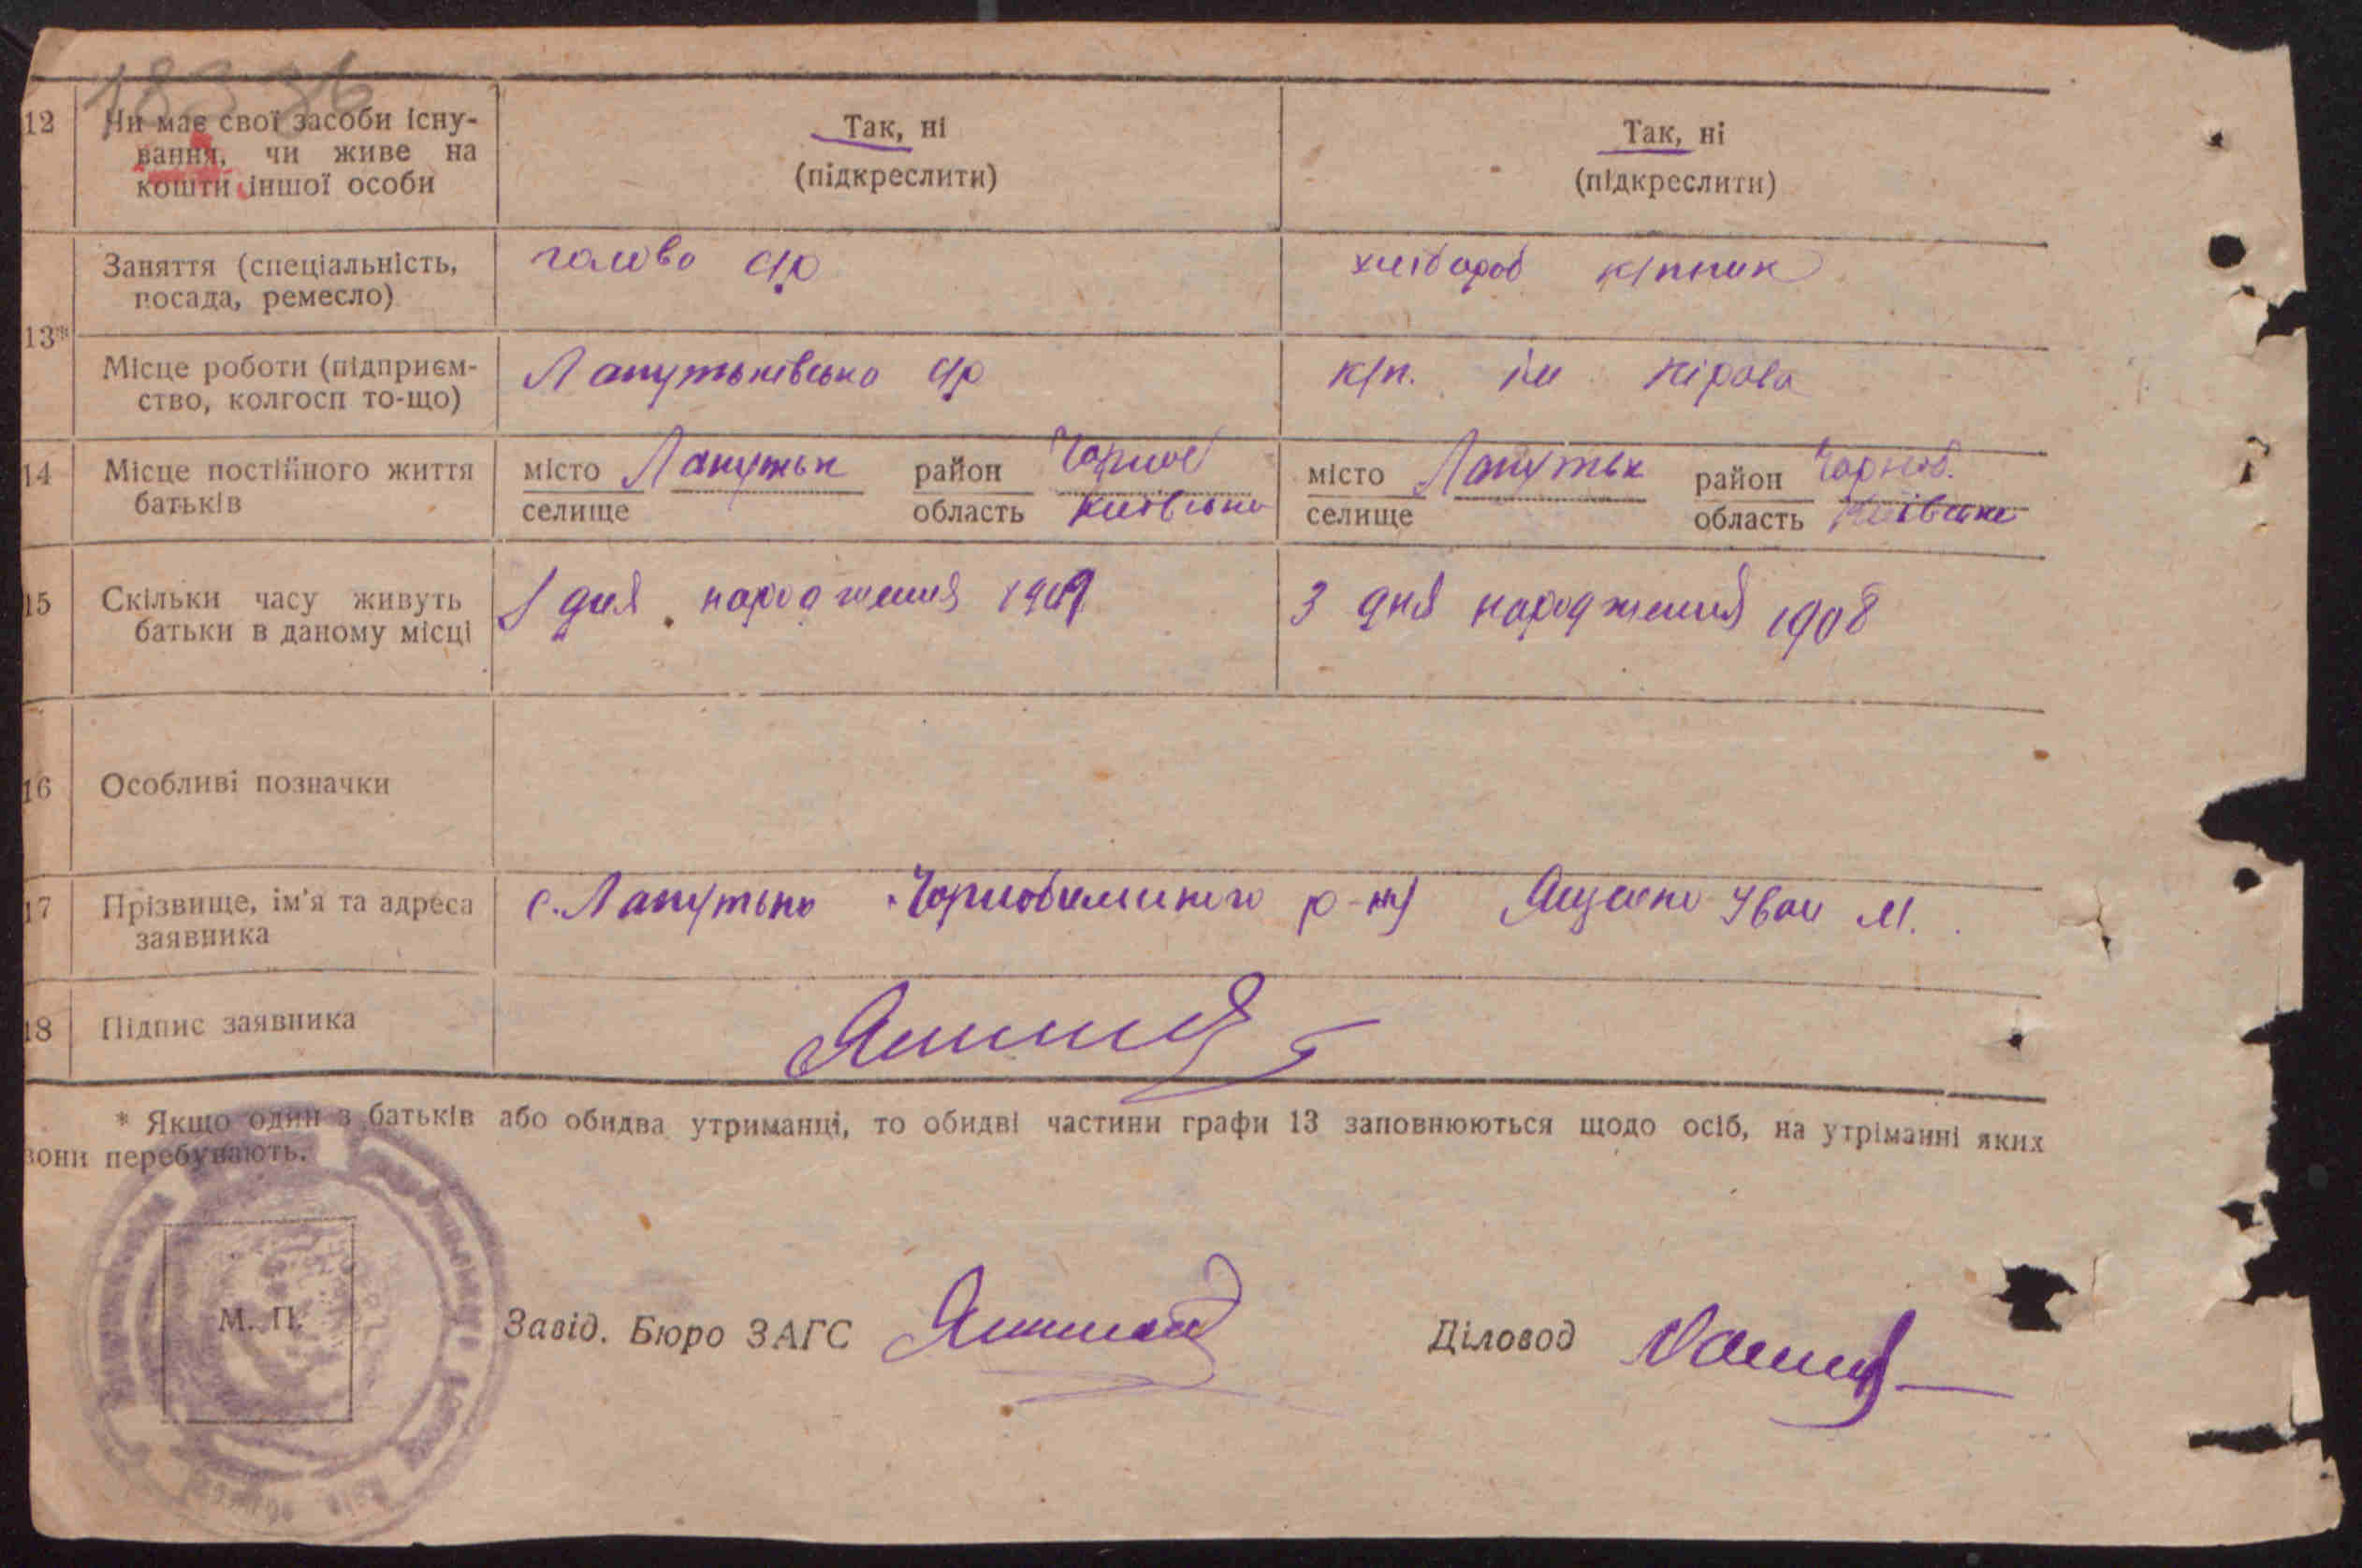 12 Чи має свої засоби існу-
вання, чи живе на
кошти іншої особи
Так, ні
(підкреслити)
Так, ні
(підкреслити)
13*
Заняття (спеціальність,
посада, ремесло)
голова с/р
хлібороб к/пник
Місце роботи (підприєм-
ство, колгосп то-що)
Лапутьківська с/р
к/п. ім Кірова
14 Місце постійного життя
батьків
місто Лапутьк район Чорноб
селище область Київська
місто Лапутьк район Чорноб.
селище область Київська
15 Скільки часу живуть
батьки в даному місці
дня народження 1909
З дня народження 1908
16 Особливі позначки
17 Прізвище, ім'я та адреса
заявника
с. Лапутьки Чорнобильського р-ну Іван М.
18 Підпис заявника
* Якщо один з батьків або обидва утриманці, то обидві частини графи 13 заповнюються щодо осіб, на утріманні яких
вони перебувають.
М. П.
Завід. Бюро ЗАГС
Діловод